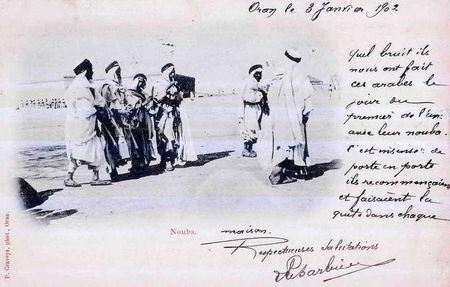 Oran le 3 Janvier 1902
Quel bruit ils
nous ont fait
ces arabes le
jour du
premier de l'an
avec leur nouba.
C'est insensé : de
porte en porte
ils recommençaient
et faisaient la
quête dans chaque
maison.
Respectueuses Salutations
Nouba.
P. Geaveys, phot., Oran.